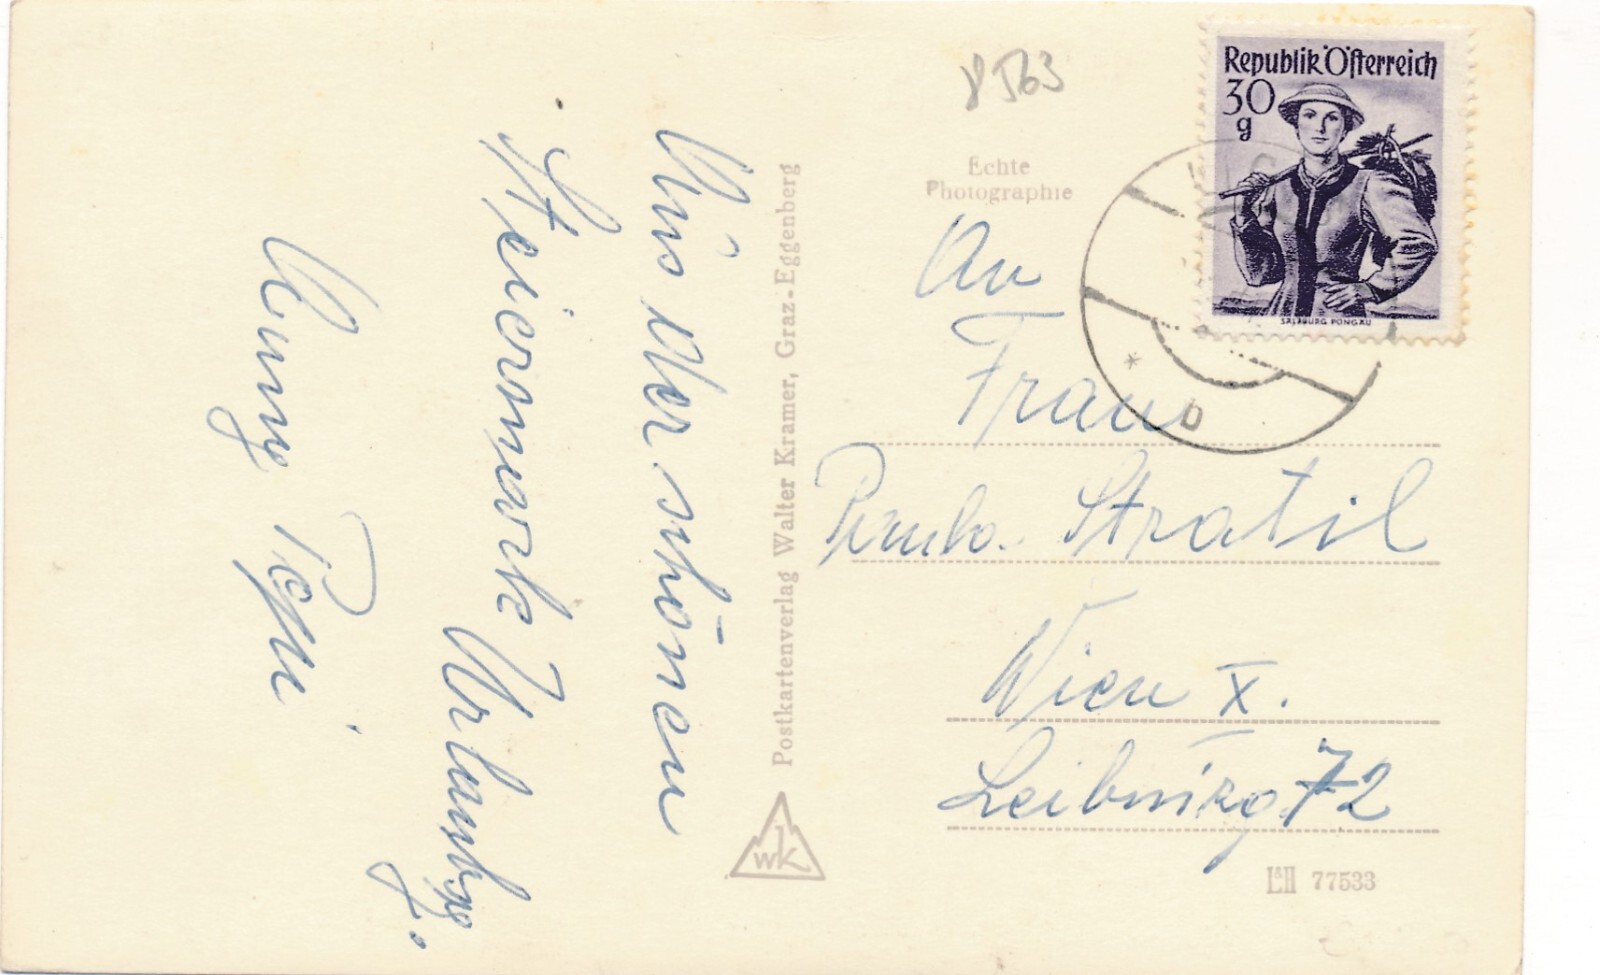 Aus der schönen
Steiermark Urlaubsg.
Anny Peppi
Postkartenverlag Walter Kramer, Graz-Eggenberg
WK
8563
Echte
Photographie
Republik Österreich
30
g
SALZBURG PONGAU
* b
An
Frau
Stratil
Wien X.
Leibnizg. 72
L&H 77533